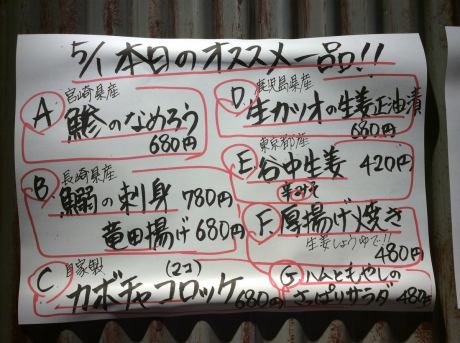 5/1 本日のオススメ一品!!
A 宮崎県産
鯵のなめろう
680円
B 長崎県産
鰯の刺身 780円
竜田揚げ 680円
C 自家製 (2コ)
カボチャコロッケ 680円
D 鹿児島県産
生カツオの生姜正油漬
680円
E 東京都産
谷中生姜 420円
辛みそ
F 厚揚げ焼き
生姜しょうゆで!!
480円
G ハムともやしの
さっぱりサラダ 480円